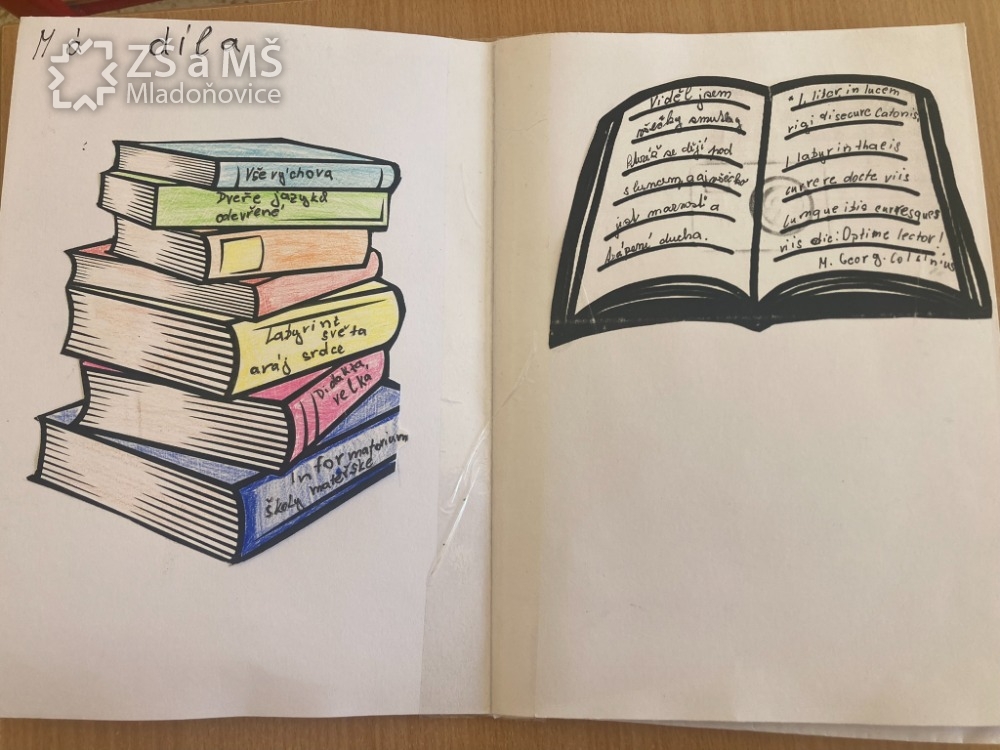 Má díla
ZŠ a MŠ
Mladoňovice
Vševýchova
Dveře jazyků
otevřené
Labyrint
světa
a ráj srdce
Didakta,
velká
Informatorium
školy mateřské
Viděl jsem
všecky skutky
kteréž se dějí pod
sluncem, a aj všecko
jest marnost a
trápení ducha.
"I, liber in lucem
rigi disecure Catonis,
Labyrinthaeis
currere docte viis
Cumque istis curresques
viis dic: Optime lector!
M. Georg. Colsinius